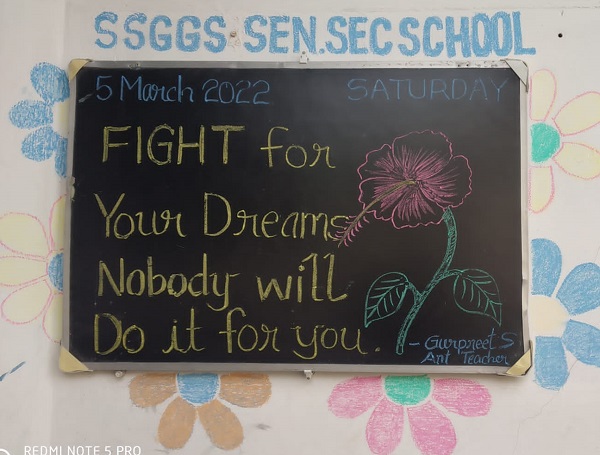 SSGGS SEN.SEC SCHOOL
5 March 2022 SATURDAY
FIGHT for
Your Dreams
Nobody will
Do it for you.
- Gurpreet S
Art Teacher
REDMI NOTE 5 PRO